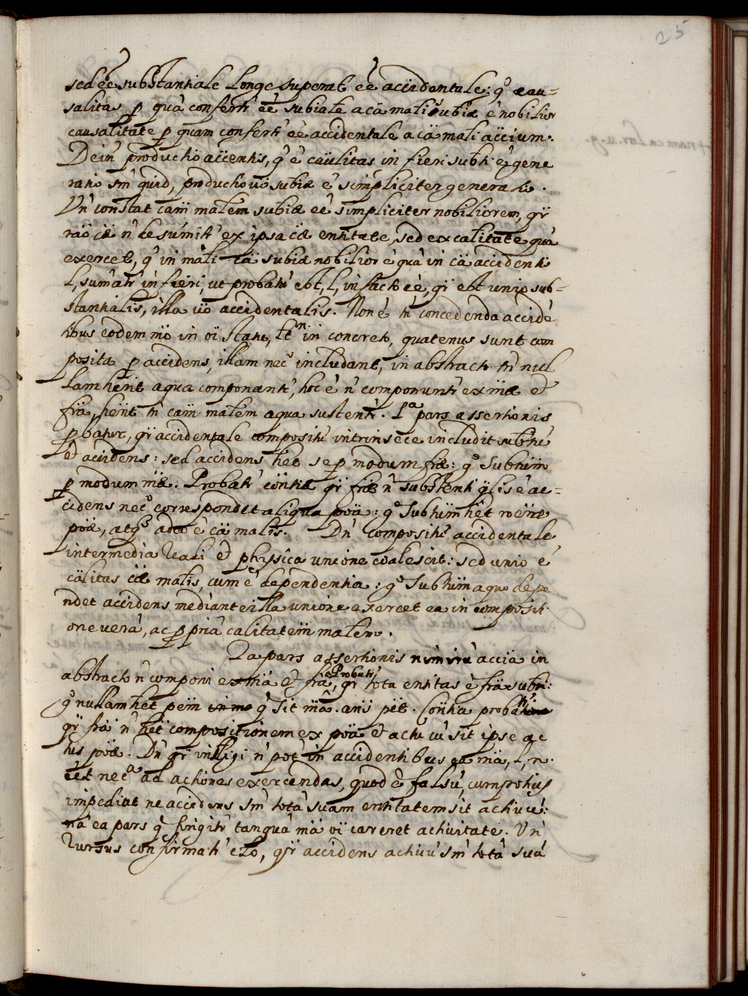 25
sed eē substantiale longe superat eē accidentale: gº cau-
salitas p quā confertr eē subiate a cā mali subiæ ē nobilior
causalitate p quam confertr eē accidentale a cā mali accium.
Dein productio accentis, qº ē caulitas in fieri subti ē gene
ratio sm quid, productio uo subiæ ē simpliciter generatio.
Vn constat cam malem subiæ eē simpliciter nobiliorem, qr
rāo cæ n desumitr ex ipsa cæ entitate, sed ex calitate quā
exercet, qº in mali cā subiæ nobilior ē quā in cā accidenti
l, sumatr in fieri, ut probatū est, l, in facto eē, qr est unio sub-
stantialis, illa uo accidentalis. Non ē tn concedenda accidē
tibus eodem mō in oi statu, tn in concreto, quatenus sunt com
posita p accidens, illam necº includant, in abstracto tn nul
lam hent a qua componantr, hoc ē n componuntr ex mā et
frā, hent tn cam malem a qua sustentr. 1ª pars assertionis
pbatur, qr accidentale compositū intrinsece includit subtū
et accidens: sed accidens het se p modum fræ: gº subtum
p modum mæ. Probatr cōntia qr fræ n substanti qlis ē ac-
cidens necº correspondet aliqua poā: gº subtum het rōnē
poæ, atqº adeo ē cā malis. Dn compositū accidentale
intermedia reali et physica unione coalescit: sed unio ē
cālitas cæ malis, cum ē dependentia: gº subtum a quo depe
ndet accidens mediante illa unione exercet ea in composit
one uerā, ac ppriā calitatem malem.
2a pars assertionis nimirū accia in
abstracto n componi ex mā et frā, Probatr qr tota entitas ē frā subti:
gº nullam het pem qº sit mā. ans pēt. Cōntia probatr
qr frā n het compositionem ex poā et actu cū sit ipse ac
tus poæ. Dn qr intlligi n pot in accidentibus ea mā, l, n
ēēt necª ad actiones exercendas, quod ē falsū, cum potius
impediat ne accidens sm totā suam entitatem sit actiuū:
nā ea pars qº fingitr tanquā mā oi careret actiuitate. Vn
rursus confirmatr ero, qr accidens actiuū sm totā suā